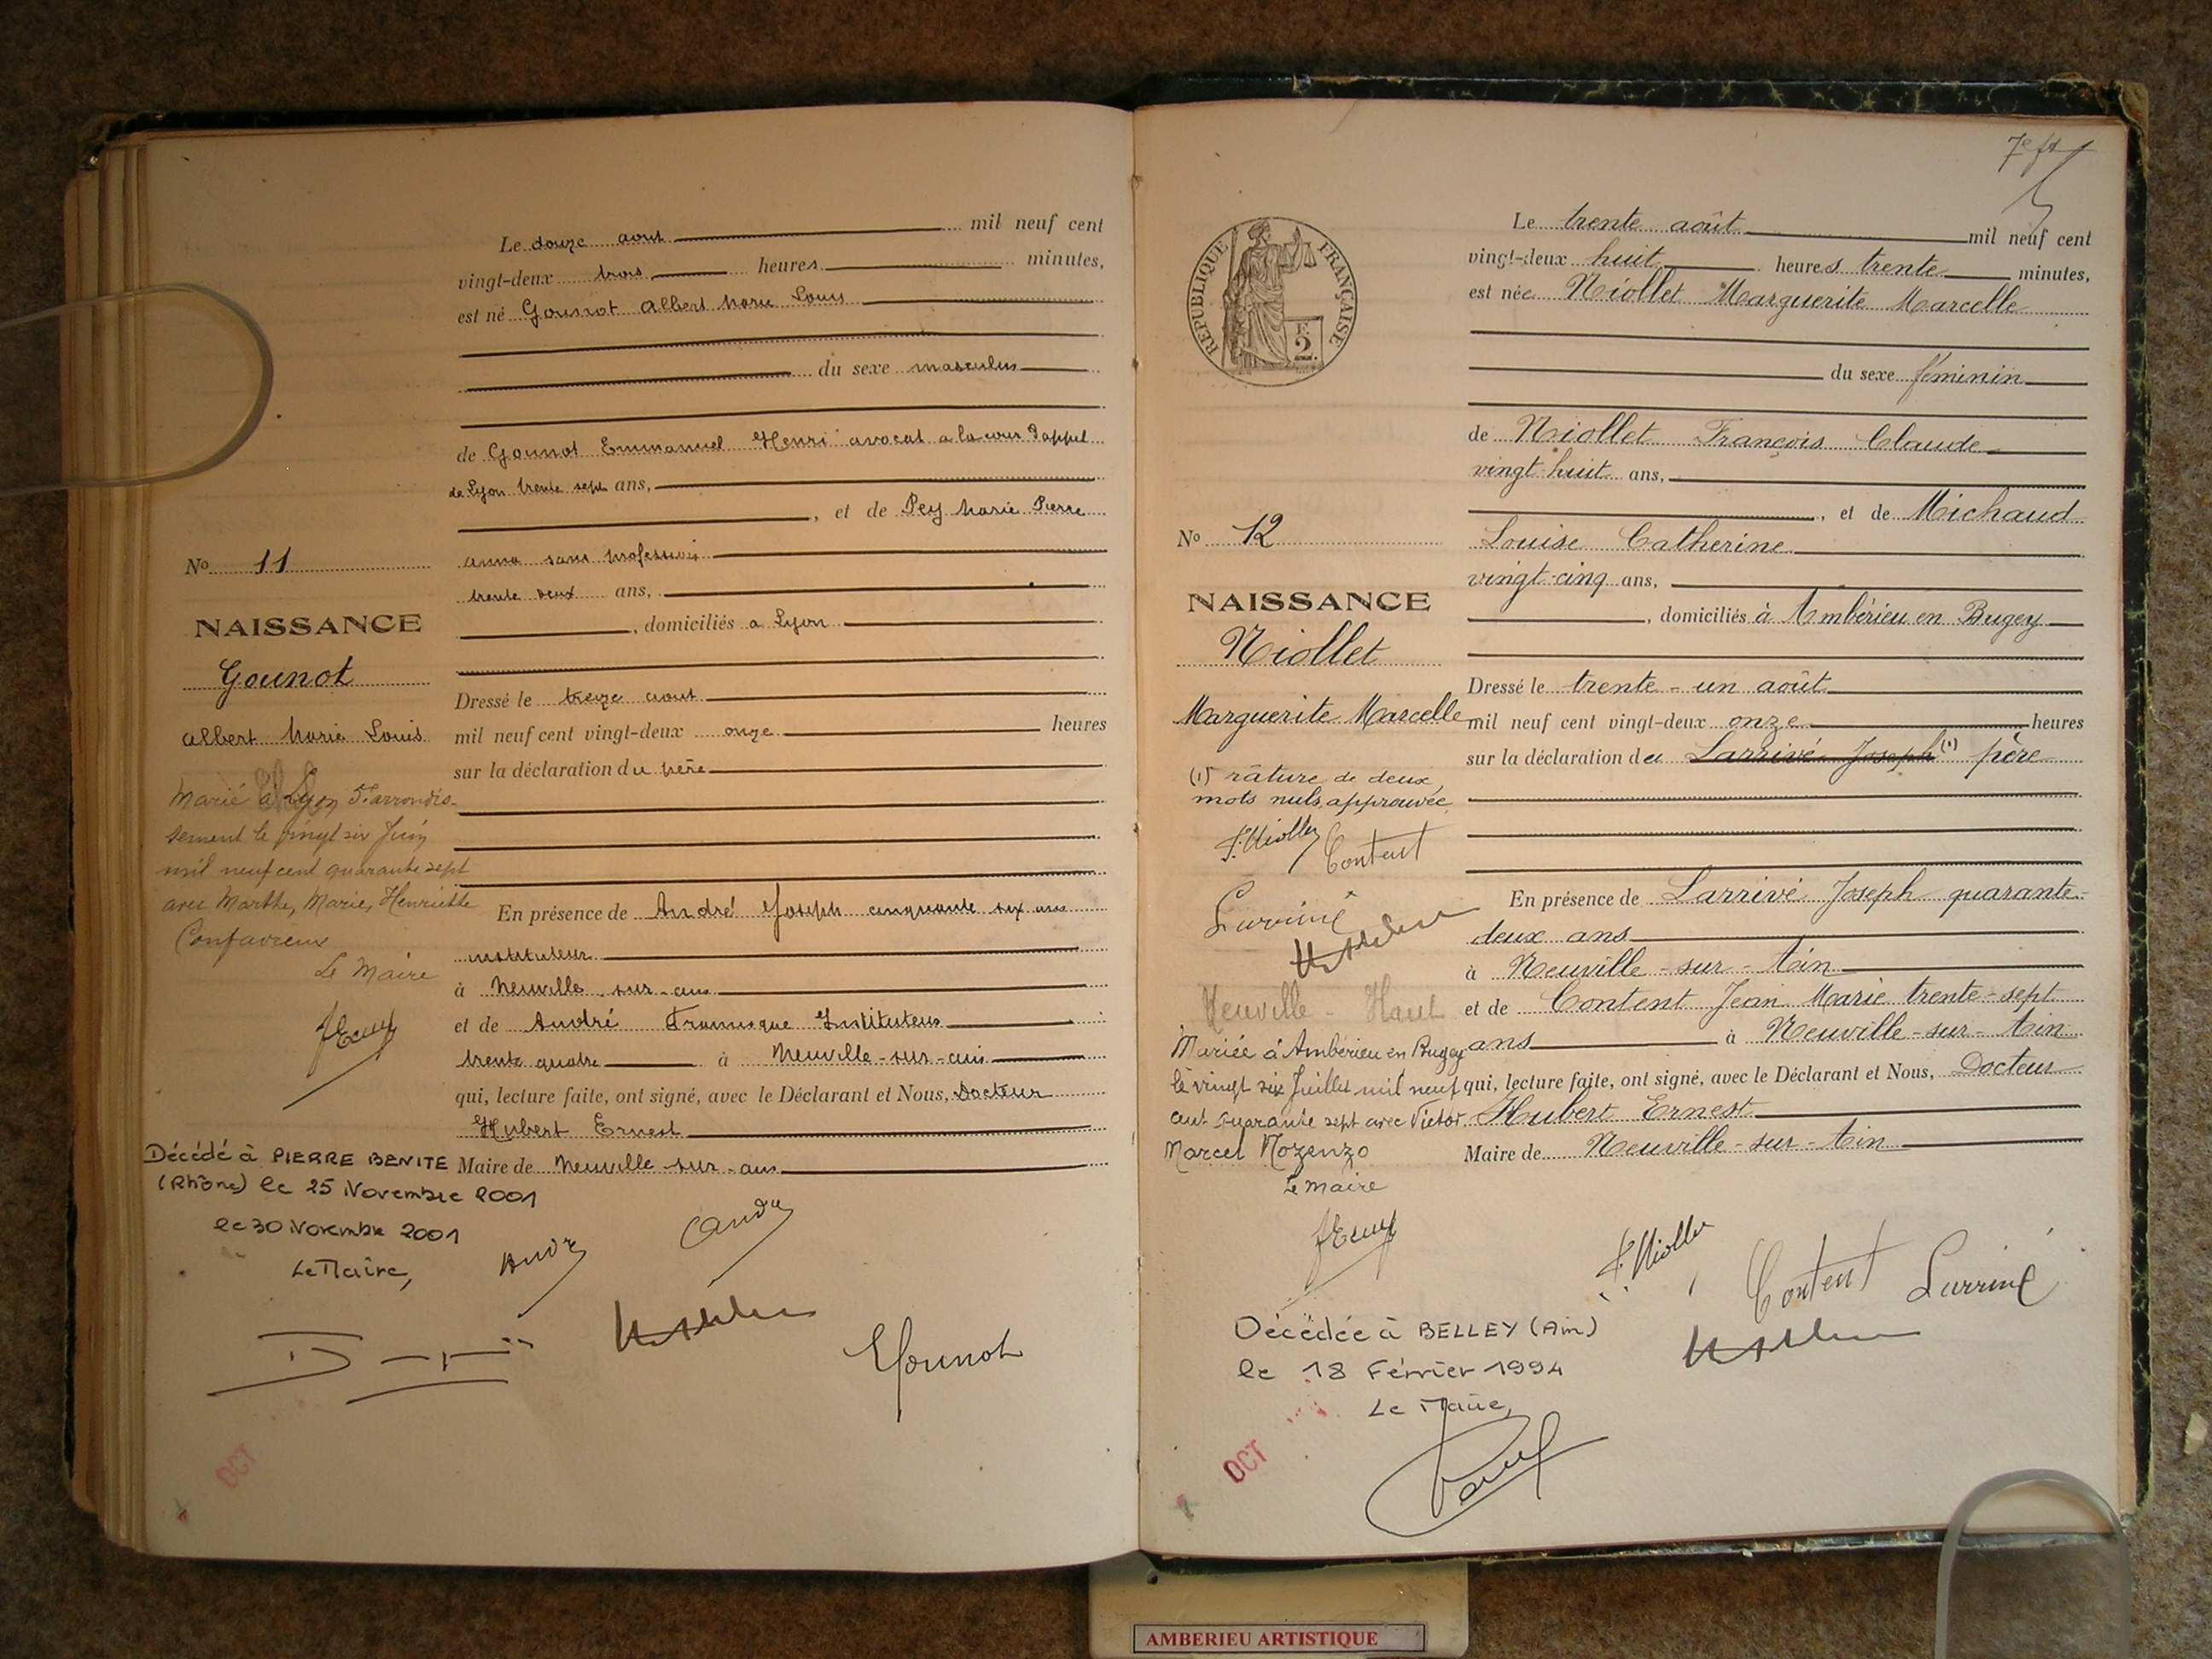 Le douze aout mil neuf cent
vingt-deux trois heures minutes,
est né Gounot Albert Marie Louis
du sexe masculin
de Gounot Emmanuel Henri avocat a la cour d'appel
de Lyon trente sept ans,
, et de Pey Marie Pierre
No 11
anna sans profession
trente deux ans,
NAISSANCE
, domiciliés a Lyon
Gounot
Dressé le treize aout
Albert Marie Louis
mil neuf cent vingt-deux onze heures
sur la déclaration du père
Marié à Lyon 5e arrondis-
sement le vingt six Juin
mil neuf cent quarante sept
avec Marthe, Marie, Henriette
Confavreux
Le Maire
En présence de André Joseph cinquante six ans
instituteur
à Neuville-sur-ain
et de André Francisque Instituteur
trente quatre à Neuville-sur-ain
qui, lecture faite, ont signé, avec le Déclarant et Nous, Docteur
Hubert Ernest
Maire de Neuville sur-ain
Décédé à PIERRE BENITE
(Rhône) le 25 Novembre 2001
le 30 Novembre 2001
Le Maire,
André
Gounot
OCT
7e ft
RÉPUBLIQUE FRANÇAISE
2
Le trente août mil neuf cent
vingt-deux huit heures trente minutes,
est née Niollet Marguerite Marcelle
du sexe féminin
de Niollet François Claude
vingt-huit ans,
, et de Michaud
No 12
Louise Catherine
vingt-cinq ans,
NAISSANCE
, domiciliés à Ambérieu en Bugey
Niollet
Dressé le trente-un août
Marguerite Marcelle
mil neuf cent vingt-deux onze heures
sur la déclaration du Larrivé Joseph (1) père
(1) râture de deux
mots nuls approuvée
F. Niollet
Content
Larrivé
En présence de Larrivé Joseph quarante-
deux ans
à Neuville-sur-Ain
Neuville - Haut
et de Content Jean Marie trente-sept
ans à Neuville-sur-Ain
Mariée à Ambérieu en Bugey
le vingt six Juillet mil neuf
cent quarante sept avec Victor
Marcel Mozenzo
Le Maire
qui, lecture faite, ont signé, avec le Déclarant et Nous, Docteur
Hubert Ernest
Maire de Neuville-sur-Ain
F. Niollet
Content
Larrivé
Décédée à BELLEY (Ain)
le 18 Février 1994
Le Maire,
OCT
AMBERIEU ARTISTIQUE